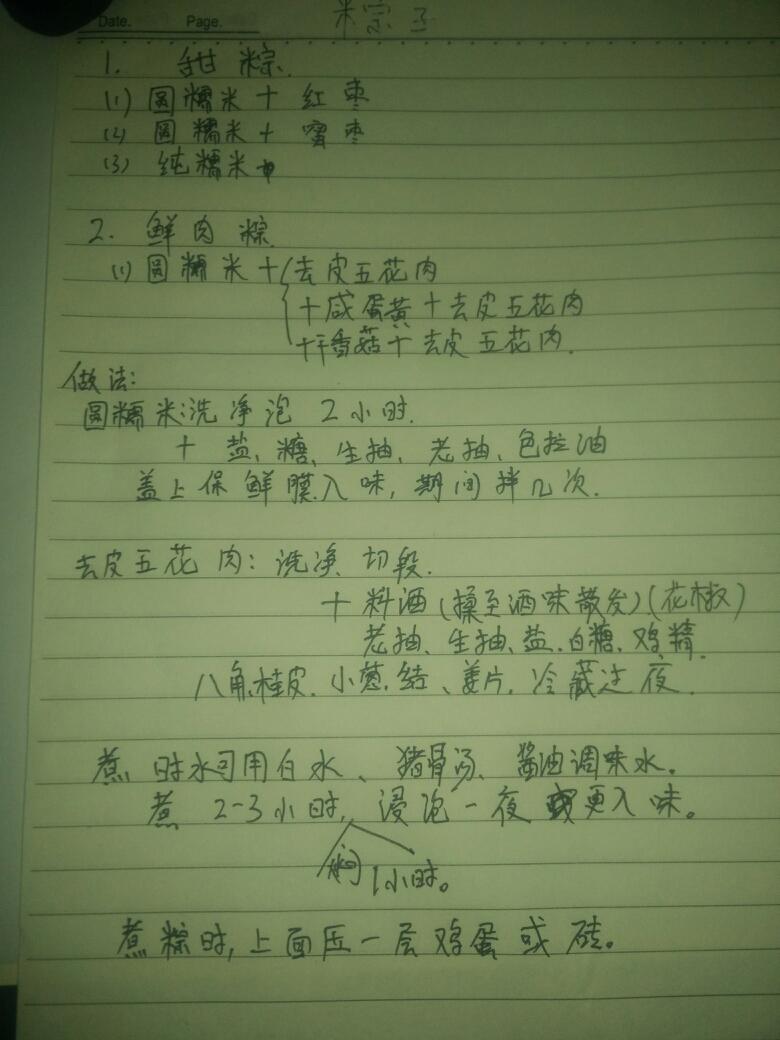 Date. Page.
米宗子
1. 甜粽.
(1) 圆糯米+红枣
(2) 圆糯米+蜜枣
(3) 纯糯米
2. 鲜肉粽.
(1) 圆糯米+去皮五花肉
+咸蛋黄+去皮五花肉
+干香菇+去皮五花肉.
做法:
圆糯米:洗净泡2小时.
+盐、糖、生抽、老抽、色拉油
盖上保鲜膜入味,期间拌几次.
去皮五花肉:洗净、切段.
+料酒(揉至酒味散发)(花椒)
老抽、生抽、盐、白糖、鸡精.
八角、桂皮、小葱结、姜片,冷藏过夜.
煮时水可用白水、猪骨汤、酱油调味水。
煮2-3小时,浸泡一夜更入味。
焖1小时。
煮粽时,上面压一层鸡蛋或砖。